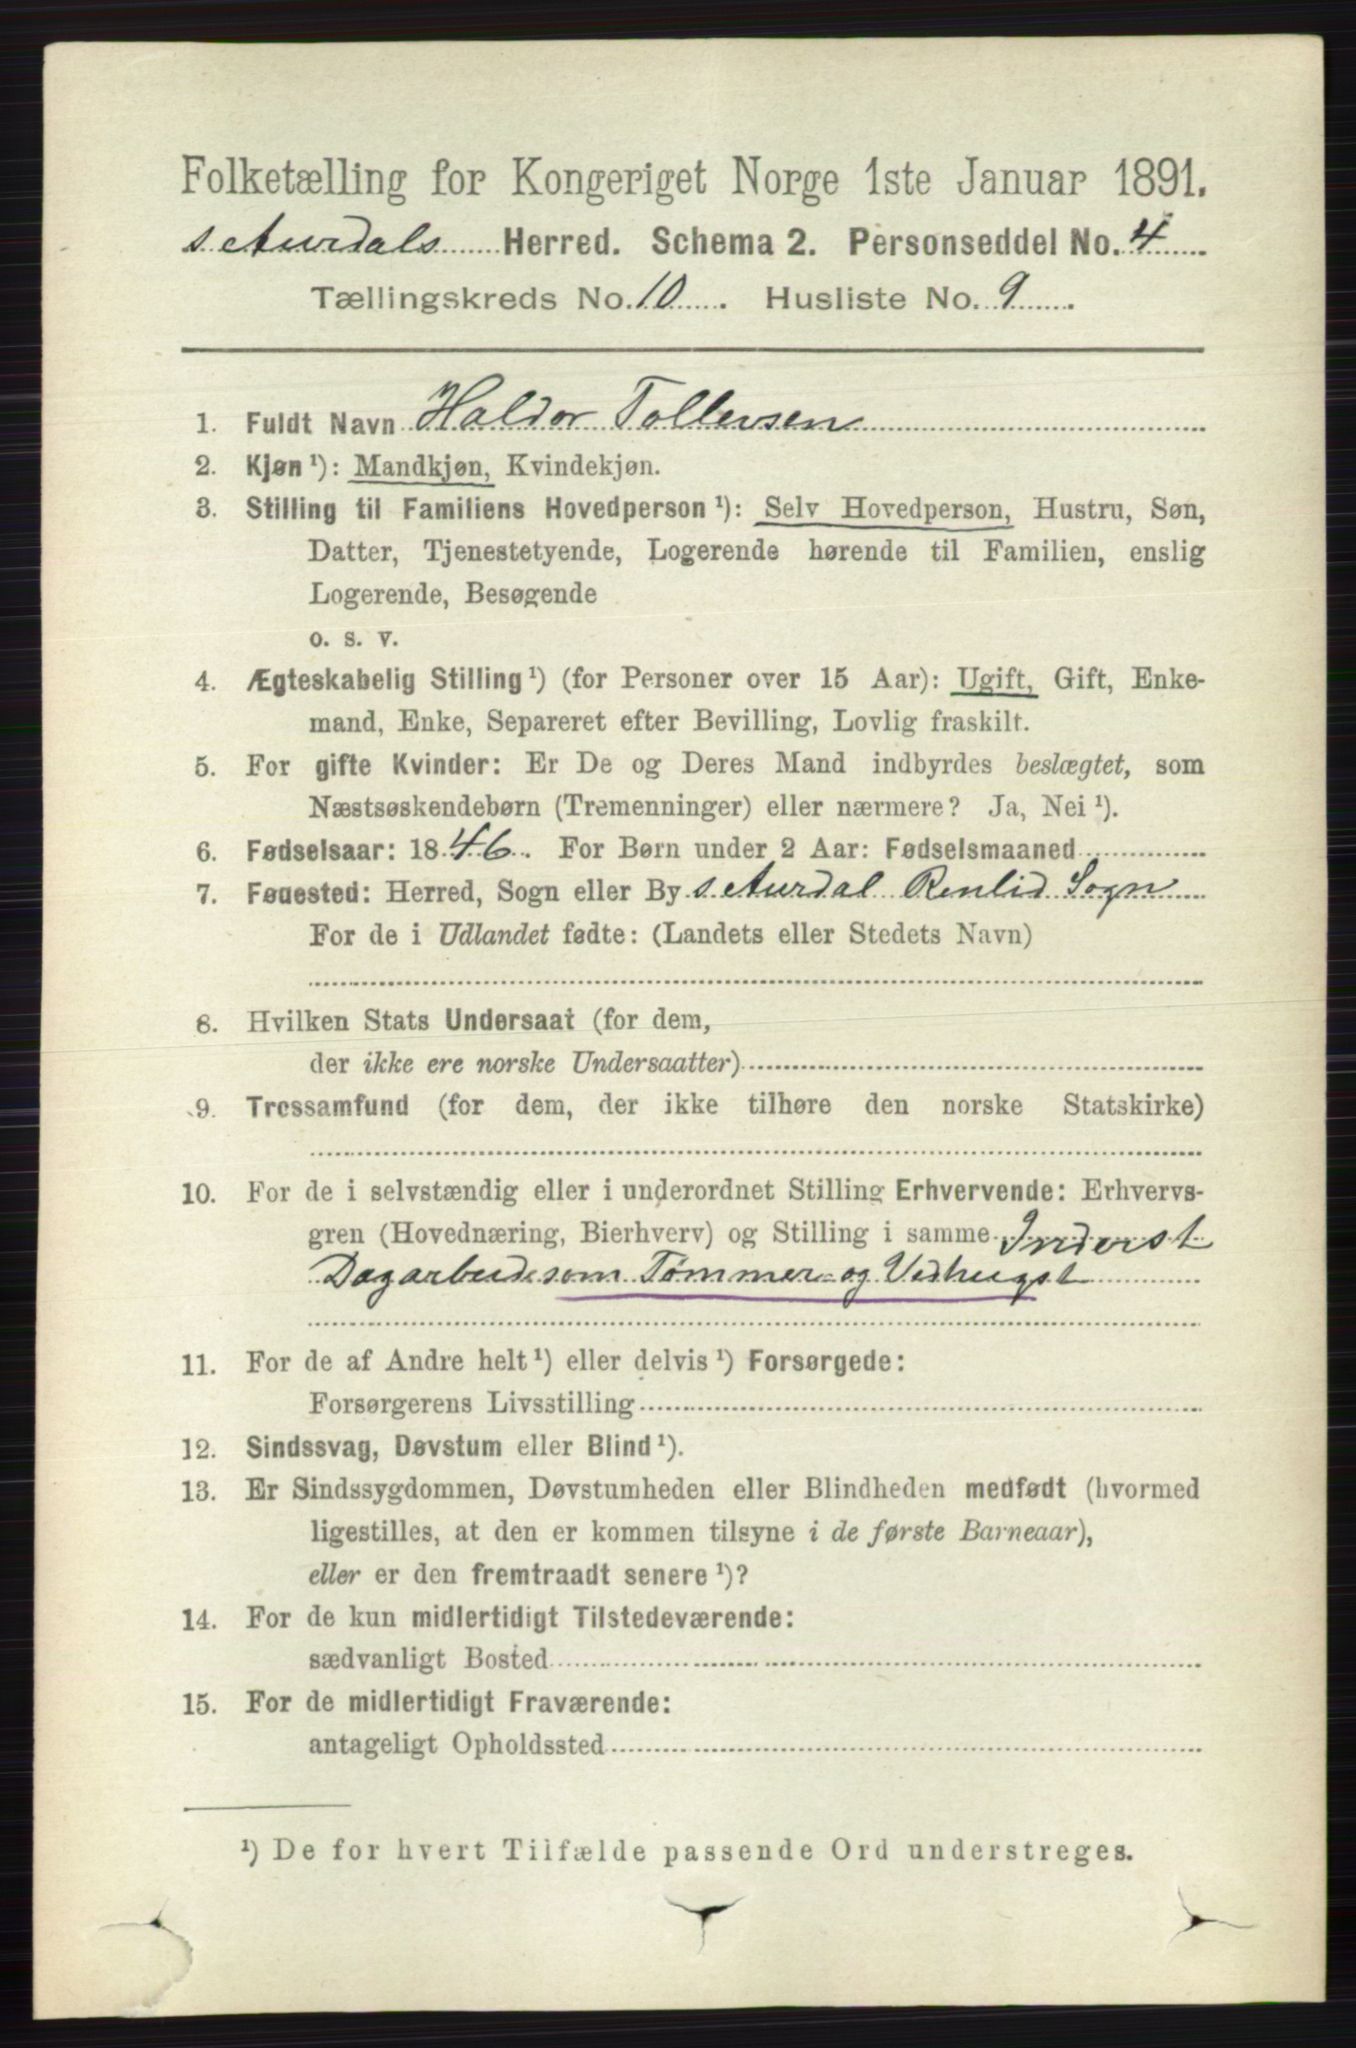 Folketælling for Kongeriget Norge 1ste Januar 1891.
S. Aurdals Herred. Schema 2. Personseddel No. 4
Tællingskreds No. 10. Husliste No. 9
1. Fuldt Navn Haldor Tollevsen
2. Kjøn¹): Mandkjøn, Kvindekjøn.
3. Stilling til Familiens Hovedperson¹): Selv Hovedperson, Hustru, Søn,
Datter, Tjenestetyende, Logerende hørende til Familien, enslig
Logerende, Besøgende
o. s. v.
4. Ægteskabelig Stilling¹) (for Personer over 15 Aar): Ugift, Gift, Enke-
mand, Enke, Separeret efter Bevilling, Lovlig fraskilt.
5. For gifte Kvinder: Er De og Deres Mand indbyrdes beslægtet, som
Næstsøskendebørn (Tremenninger) eller nærmere? Ja, Nei¹).
6. Fødselsaar: 1846. For Børn under 2 Aar: Fødselsmaaned
7. Føuested: Herred, Sogn eller By S. Aurdal Renlid Sogn
For de i Udlandet fødte: (Landets eller Stedets Navn)
8. Hvilken Stats Undersaat (for dem,
der ikke ere norske Undersaatter)
9. Trossamfund (for dem, der ikke tilhøre den norske Statskirke)
10. For de i selvstændig eller i underordnet Stilling Erhvervende: Erhvervs-
gren (Hovednæring, Bierhverv) og Stilling i samme Inderst
Dagarbeid som Tømmer- og Vedhugst
11. For de af Andre helt¹) eller delvis¹) Forsørgede:
Forsørgerens Livsstilling
12. Sindssvag, Døvstum eller Blind¹).
13. Er Sindssygdommen, Døvstumheden eller Blindheden medfødt (hvormed
ligestilles, at den er kommen tilsyne i de første Barneaar),
eller er den fremtraadt senere¹)?
14. For de kun midlertidigt Tilstedeværende:
sædvanligt Bosted
15. For de midlertidigt Fraværende:
antageligt Opholdssted
¹) De for hvert Tilfælde passende Ord understreges.